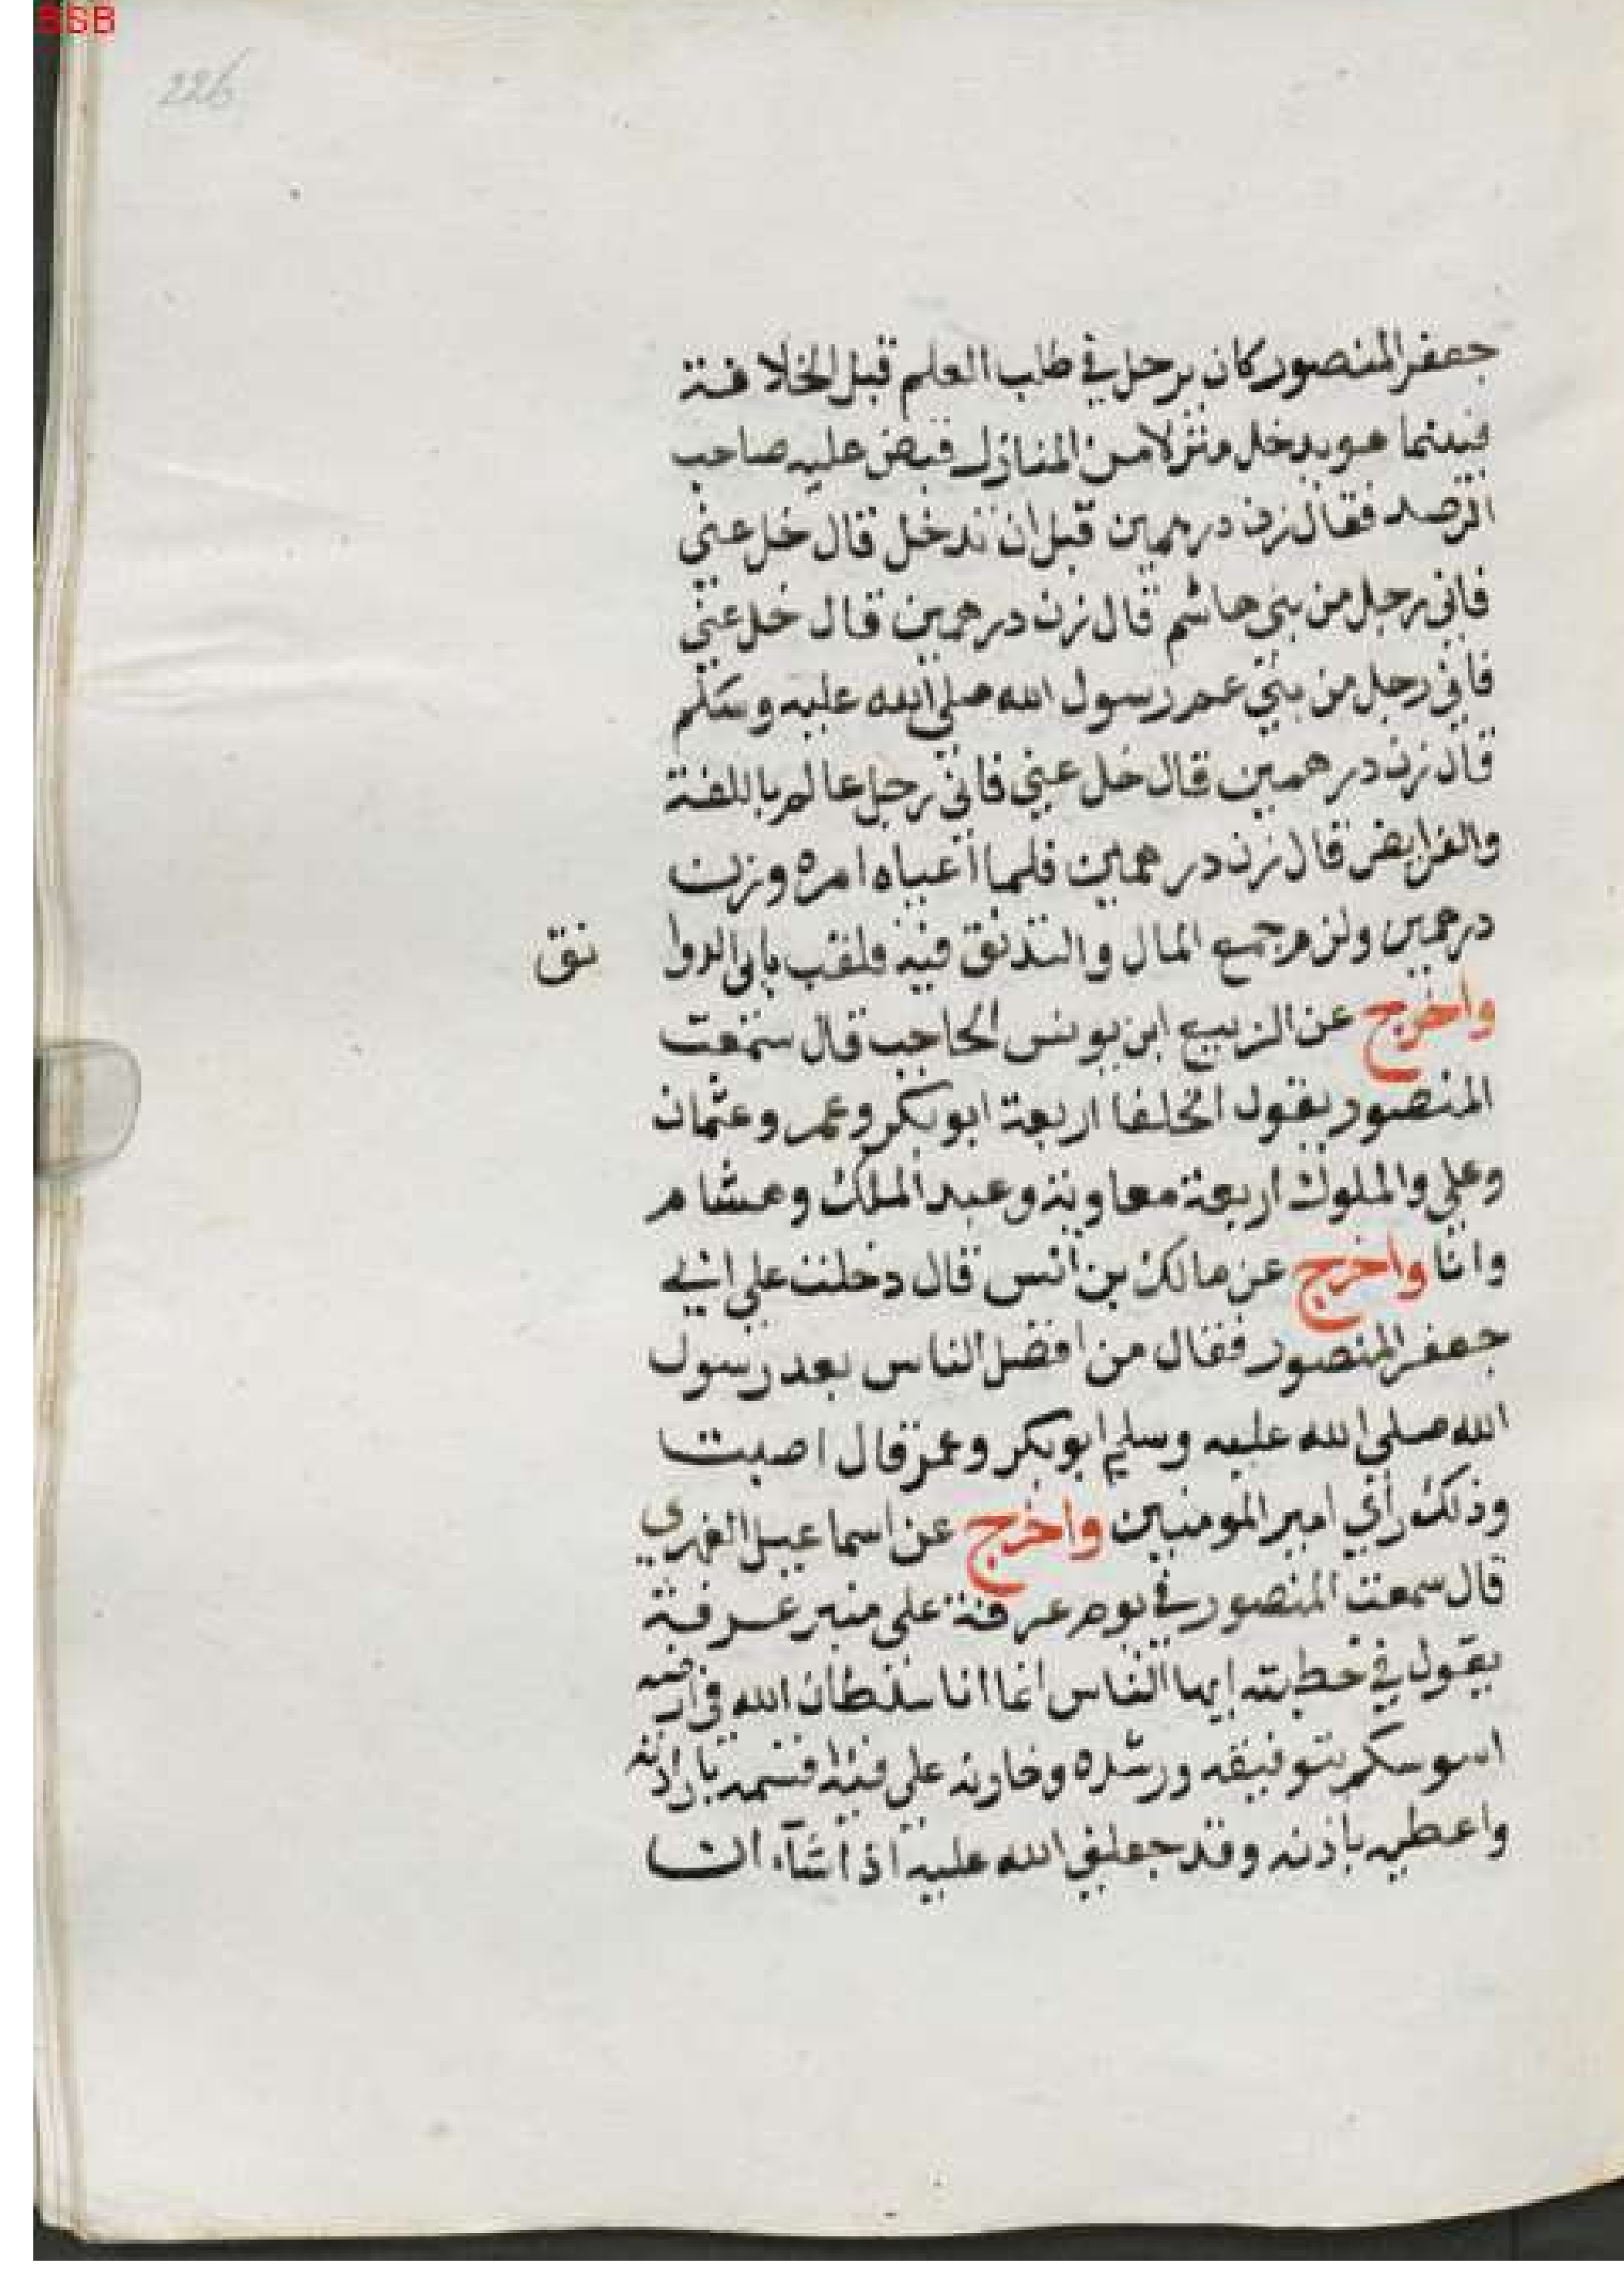 BSB
226
جعفر المنصور كان يرحل في طلب العلم قبل الخلافة
فبينما هو يدخل منزلا من المنازل قبض عليه صاحب
الرصد فقال زن درهمين قبل ان تدخل قال خل عني
فاني رجل من بني هاشم قال زن درهمين قال خل عني
فاني رجل من بني عم رسول الله صلى الله عليه وسلم
قال زن درهمين قال خل عني فاني رجل عالم باللغة
والفرايض قال زن درهمين فلما أعياه امره وزن
درهمين ولزم جمع المال والتدنق فيه فلقب بابي الدوا نق
واخرج عن الربيع ابن يونس الحاجب قال سمعت
المنصور يقول الخلفا اربعة ابو بكر وعمر وعثمان
وعلي والملوك اربعة معاوية وعبد الملك وهشام
وانا واخرج عن مالك بن أنس قال دخلت علي ابي
جعفر المنصور فقال من افضل الناس بعد رسول
الله صلى الله عليه وسلم ابو بكر وعمر قال اصبت
وذلك رأي امير المومنين واخرج عن اسماعيل الفهري
قال سمعت المنصور في يوم عرفة على منبر عرفة
يقول في خطبته ايها الناس انما انا سلطان الله في ارضه
اسوسكم بتوفيقه ورشده وخازنه علي فيئه قسمه بارادته
واعطيه بأذنه وقد جعلني الله عليه اذا شآء ان